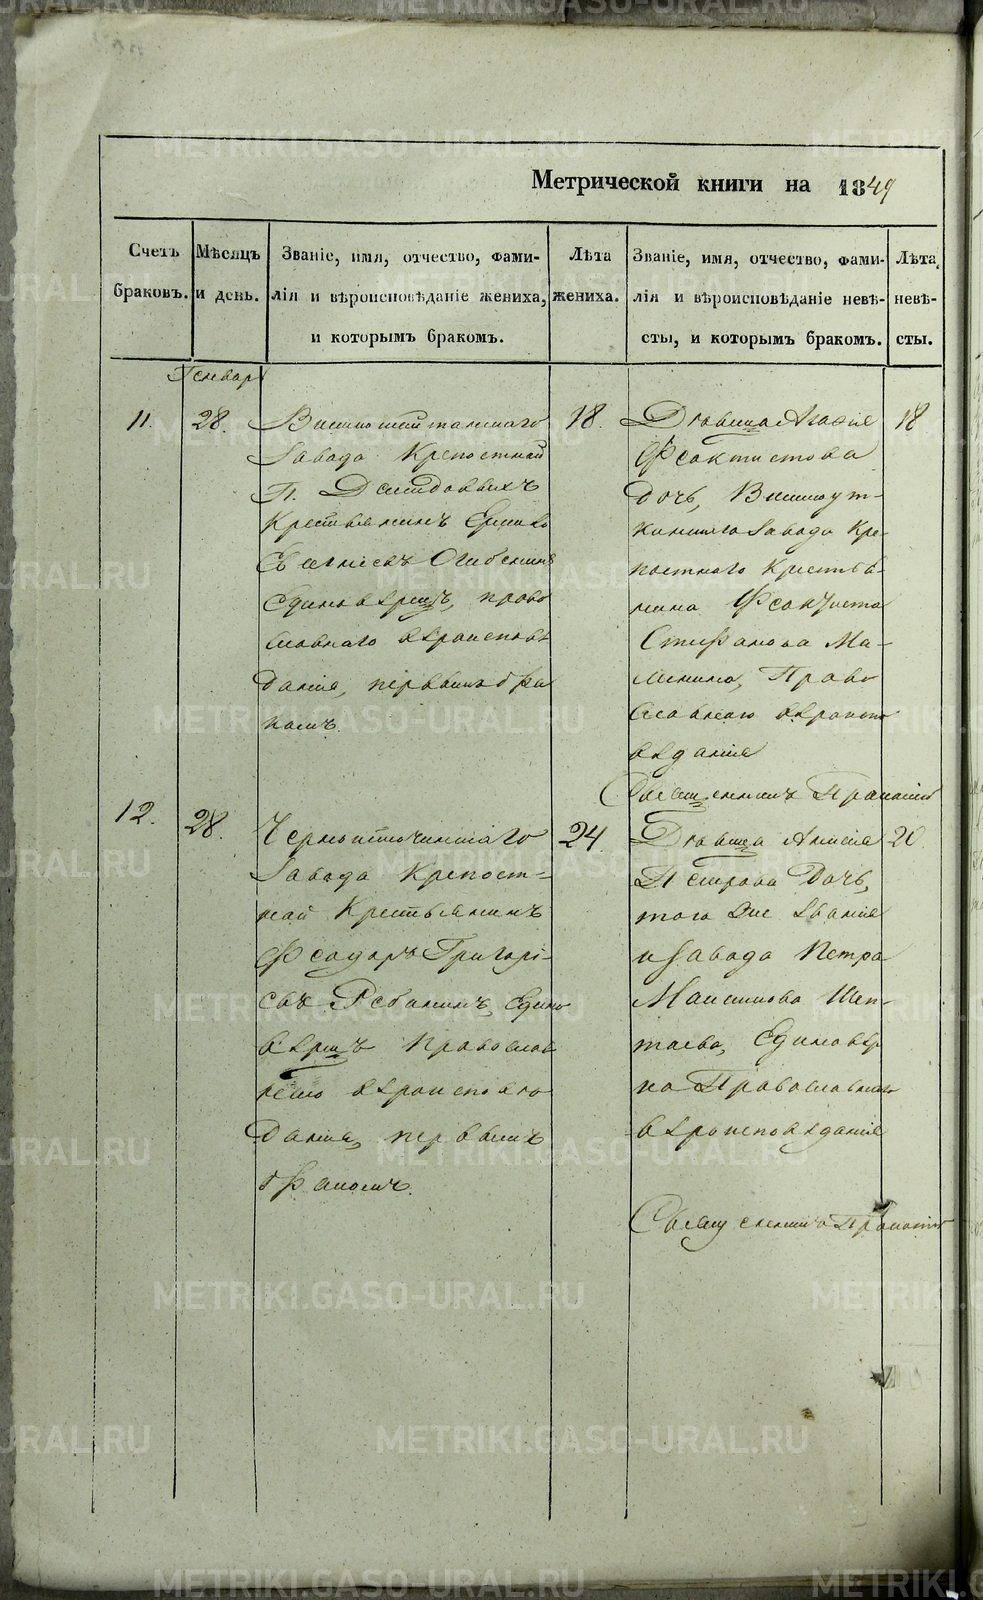 Метрической книги на 1849
Счетъ браковъ.
Мѣсяцъ и день.
Званіе, имя, отчество, фами-
лія и вѣроисповѣданіе жениха,
и которымъ бракомъ.
Лѣта жениха.
Званіе, имя, отчество, фами-
лія и вѣроисповѣданіе невѣ-
сты, и которымъ бракомъ.
Лѣта невѣ-
сты.
Генварь
11.
28.
Завода Крепостной
П. Демидовыхъ
Крестьянинъ
Единовѣрецъ, право
славнаго вѣроисповѣ
данія, первымъ бра
комъ.
18.
Дѣвица Агафія
Феоктистова
дочь,
Завода Кре-
постнаго Крестья-
нина Феоктиста
Стефанова Ма-
Право
славнаго вѣроиспо
вѣданія
18
12.
28.
Черноисточинскаго
Завода Крепост-
ной Крестьянинъ
Феодоръ Григорі-
евъ Едино
вѣрецъ Православ
наго вѣроисповѣ
данія, первымъ
бракомъ.
24
Дѣвица
Петрова Дочь,
того же званія
и Завода Петра
Единовѣр
ка Православнаго
вѣроисповѣданія
20.
METRIKI.GASO-URAL.RU